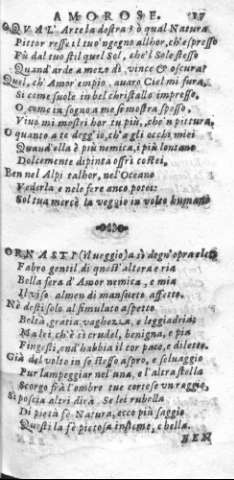 AMOROSE. 17
QVAL' Arte la destra? ò qual Natura
Pittor resse il tuo 'ngegno allhor, ch'espresso
Fù dal tuo stil quel Sol, che'l Sole stesso
Quand'arde a mezo dì vince & oscura?
Quel, ch'Amor empio, auaro Ciel mi fura,
Si come suole in bel christallo impresso,
O, come in sogno a me si mostra spesso,
Viuo mi mostri hor tu più, che'n pittura.
O quanto a te degg'io, ch'a gli occhi miei
Quand'ella è più nemica, i più lontano
Dolcemente dipinta offri costei,
Ben nel Alpi talhor, nel'Oceano
Vederla e nele fere anco potei:
Sol tua mercè la veggio in volto humano
ORNASTI (il ueggio) a sì degn'opra eletto
Fabro gentil di quest'altera e ria
Bella fera d'Amor nemica, e mia
Il viso almen di mansueto affetto.
Nè desti solo al simulato aspetto
Beltà, gratia, vaghezza, e leggiadria:
Ma lei, ch'è sì crudel, benigna, e pia
Fingesti, ond'habbia il cor pace, e diletto.
Già del volto in se stesso aspro, e seluaggio
Pur lampeggiar nel'una, e l'altra stella
Scorgo frà l'ombre tue cortese un raggio,
Si poscia altri dirà Se lei rubella
Di pietà fè Natura, ecco più saggio
Questi la fè pietosa insieme, e bella.
BEN